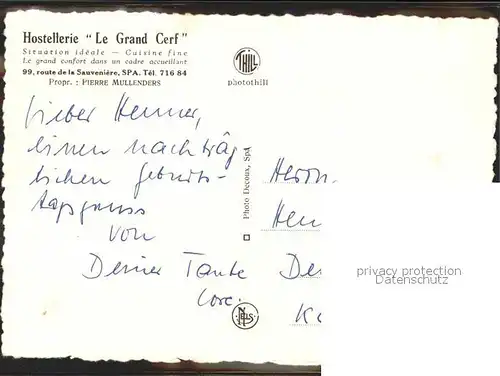 Hostellerie "Le Grand Cerf"
Situation idéale — Cuisine fine
Le grand confort dans un cadre accueillant
99, route de la Sauvenière, SPA. Tél. 716 84
Propr. : PIERRE MULLENDERS
THILL
photothill
Lieber Henner,
einen nachträg
lichen Geburts-
tagsgruss
von
Deiner Tante
Photo Decoux, Spa
NELS
Herrn
Hen
De
K
privacy protection
Datenschutz